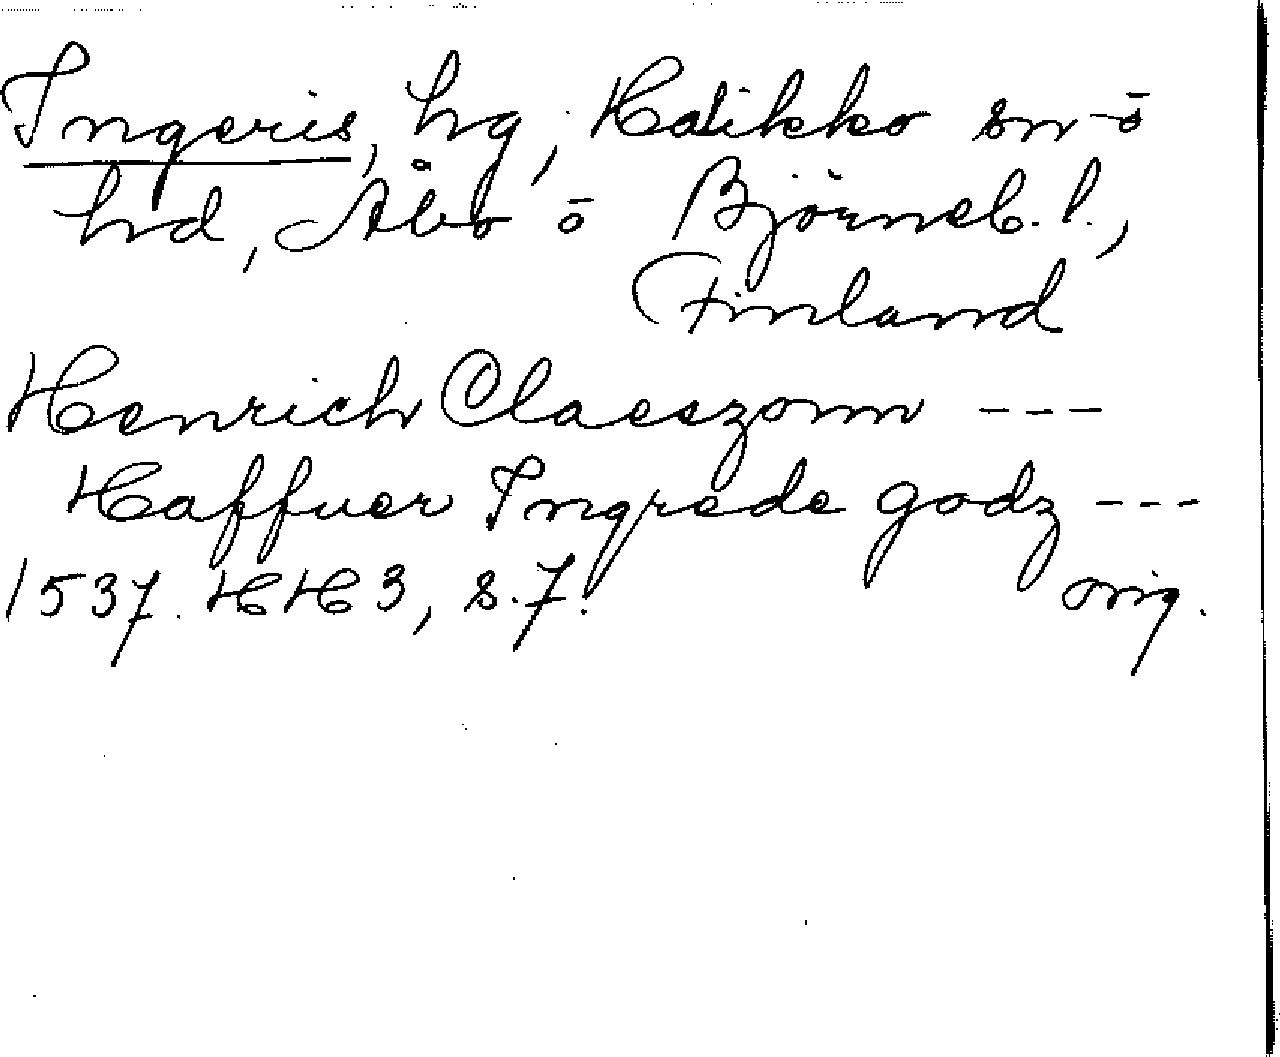 Ingeris, hg, Halikko sn ō
hd, Åbo ō Björneb. l.,
Finland
Henrich Claeszonn ---
Haffuer Ingrede godz ---
1537. HH 3, s. 7. orig.